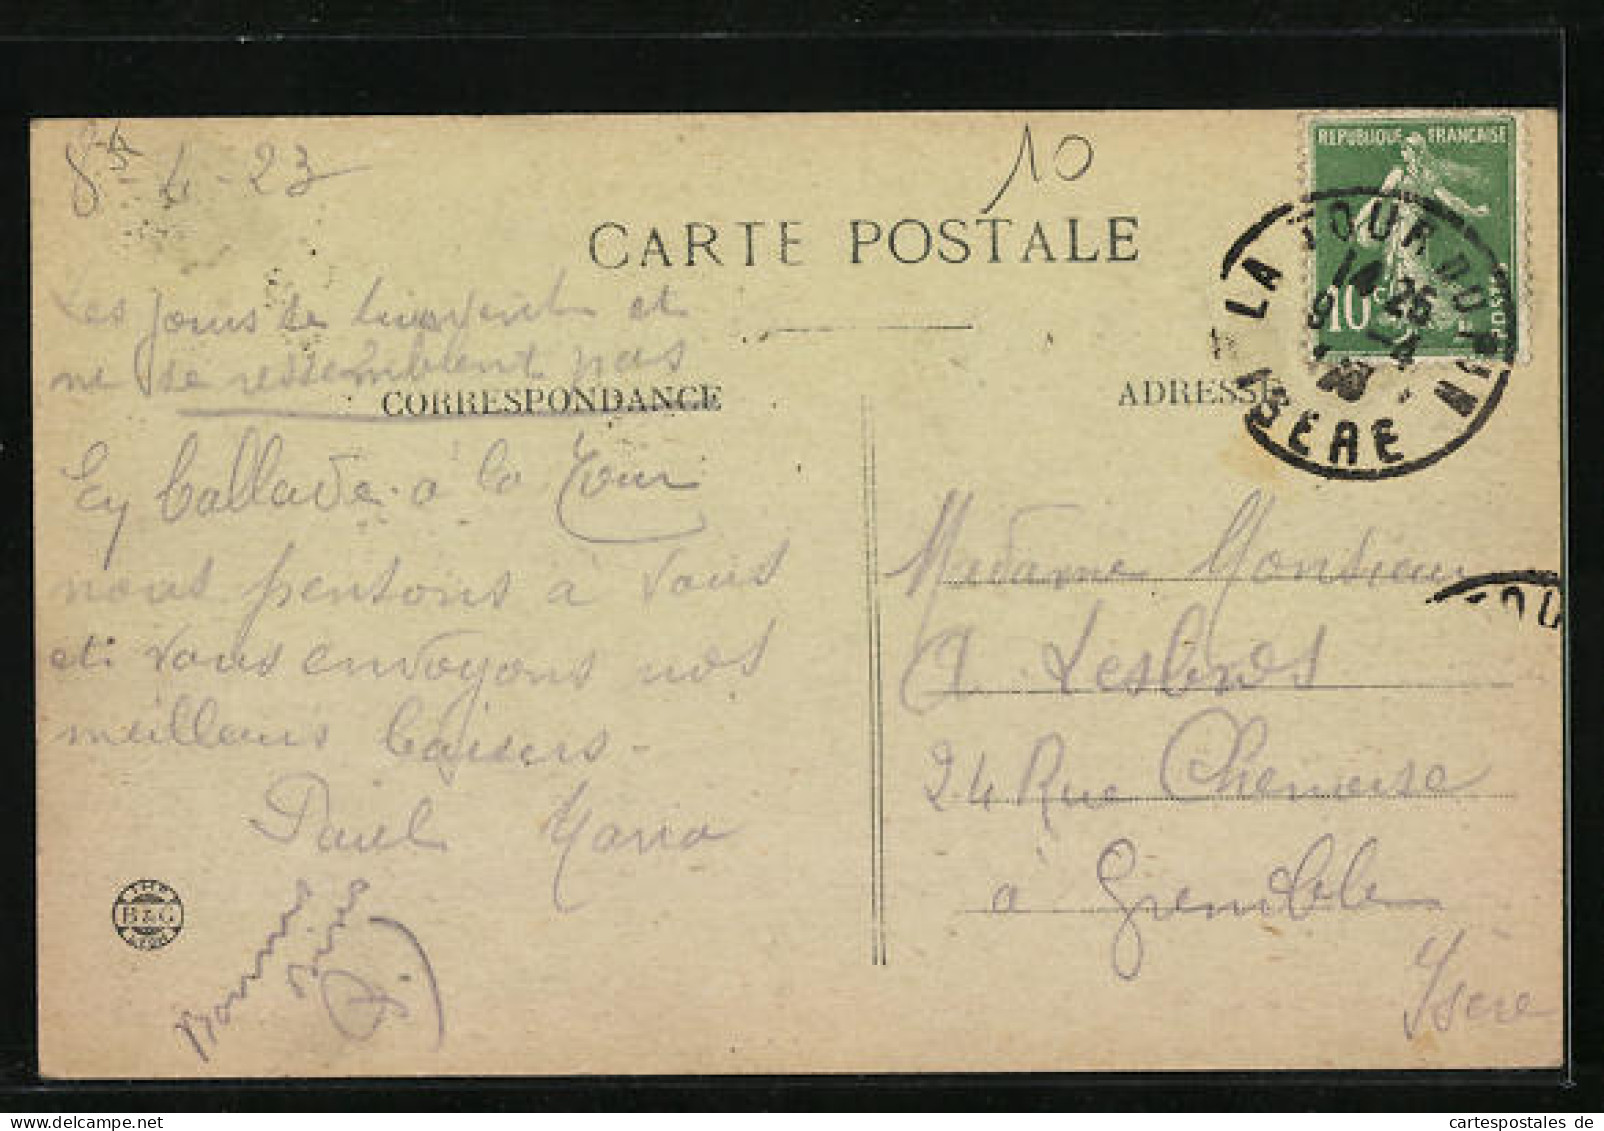 8-4-23
10
CARTE POSTALE
REPUBLIQUE FRANÇAISE
10c
POSTES
LA TOUR DU PIN
14 25
9 -4
23
ISERE
Les jours se suivent et
ne se ressemblent pas
CORRESPONDANCE
ADRESSE
En ballade à la Tour
nous pensons à vous
et vous envoyons nos
meilleurs baisers.
Paul
Bonnes
Madame Monsieur
A Lesbros
24 Rue Chenoise
à Grenoble
Isère
OU
IMP
B & G
LYON
cartespostales.de